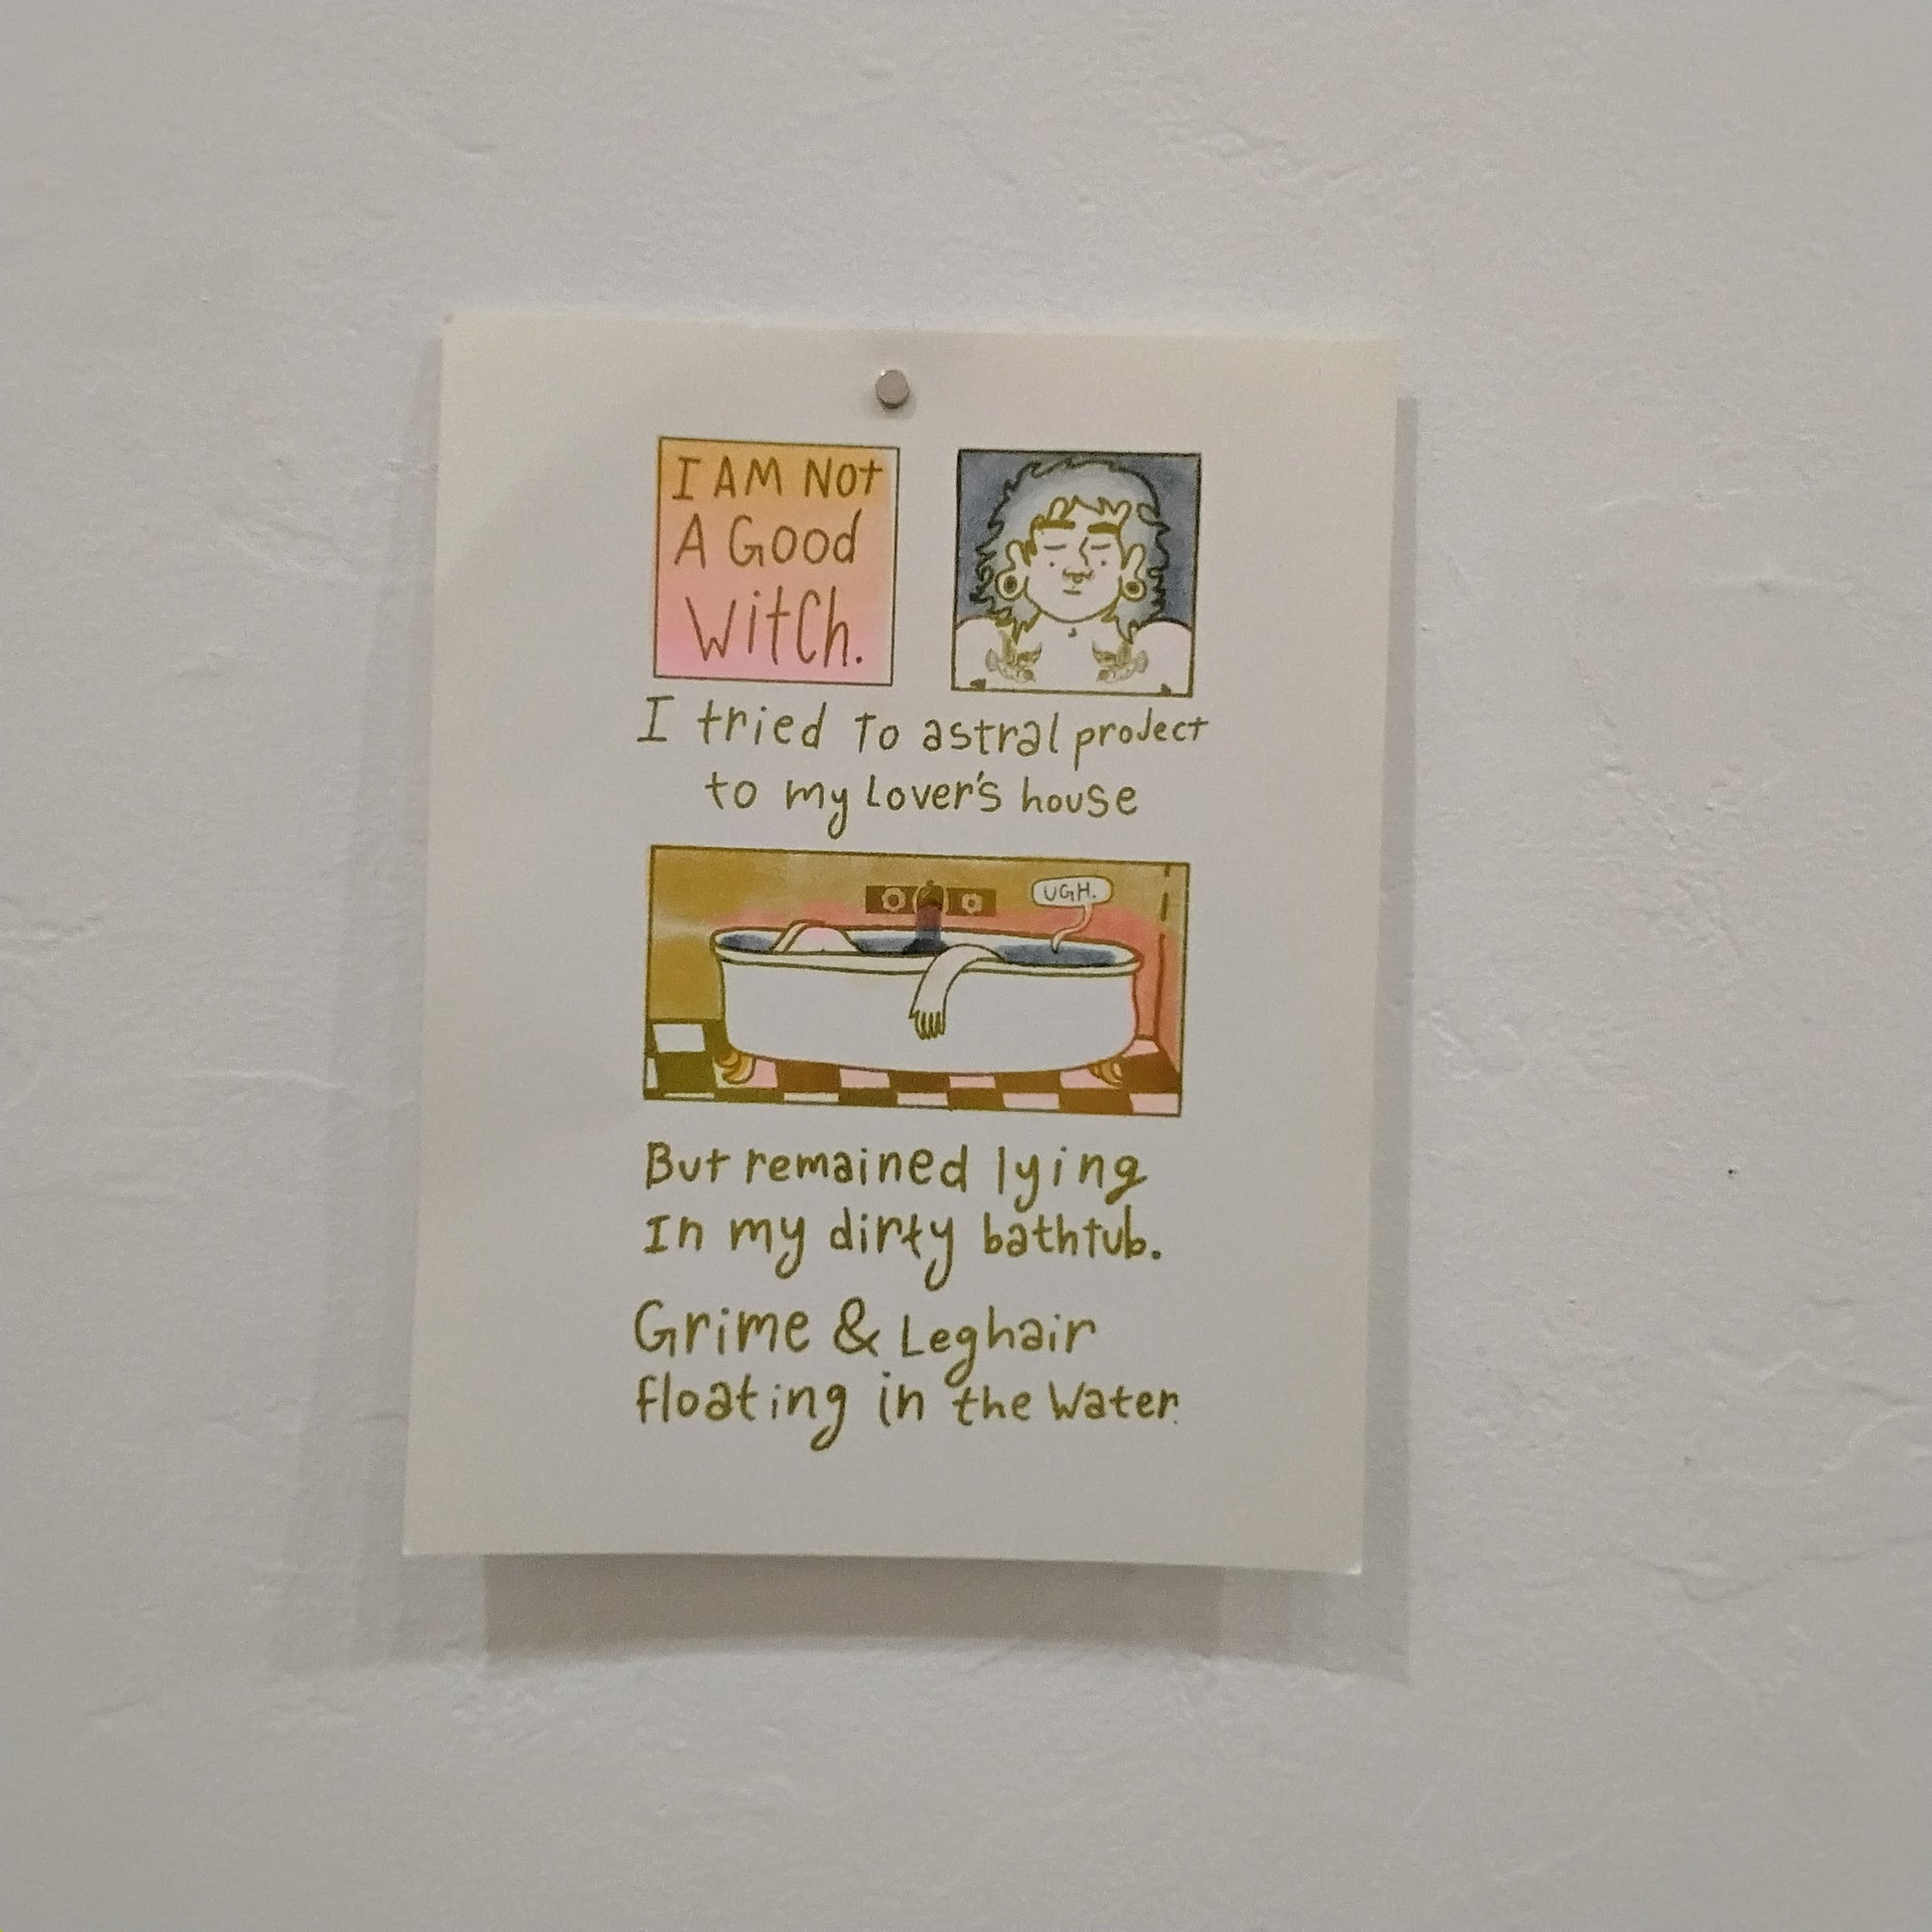 I AM NOt
A GOOd
WitCh.
I tried To astral proJect
to my Lover's house
UGH.
But remained lying
In my dirty bathtub.
Grime & Leghair
floating in the Water.